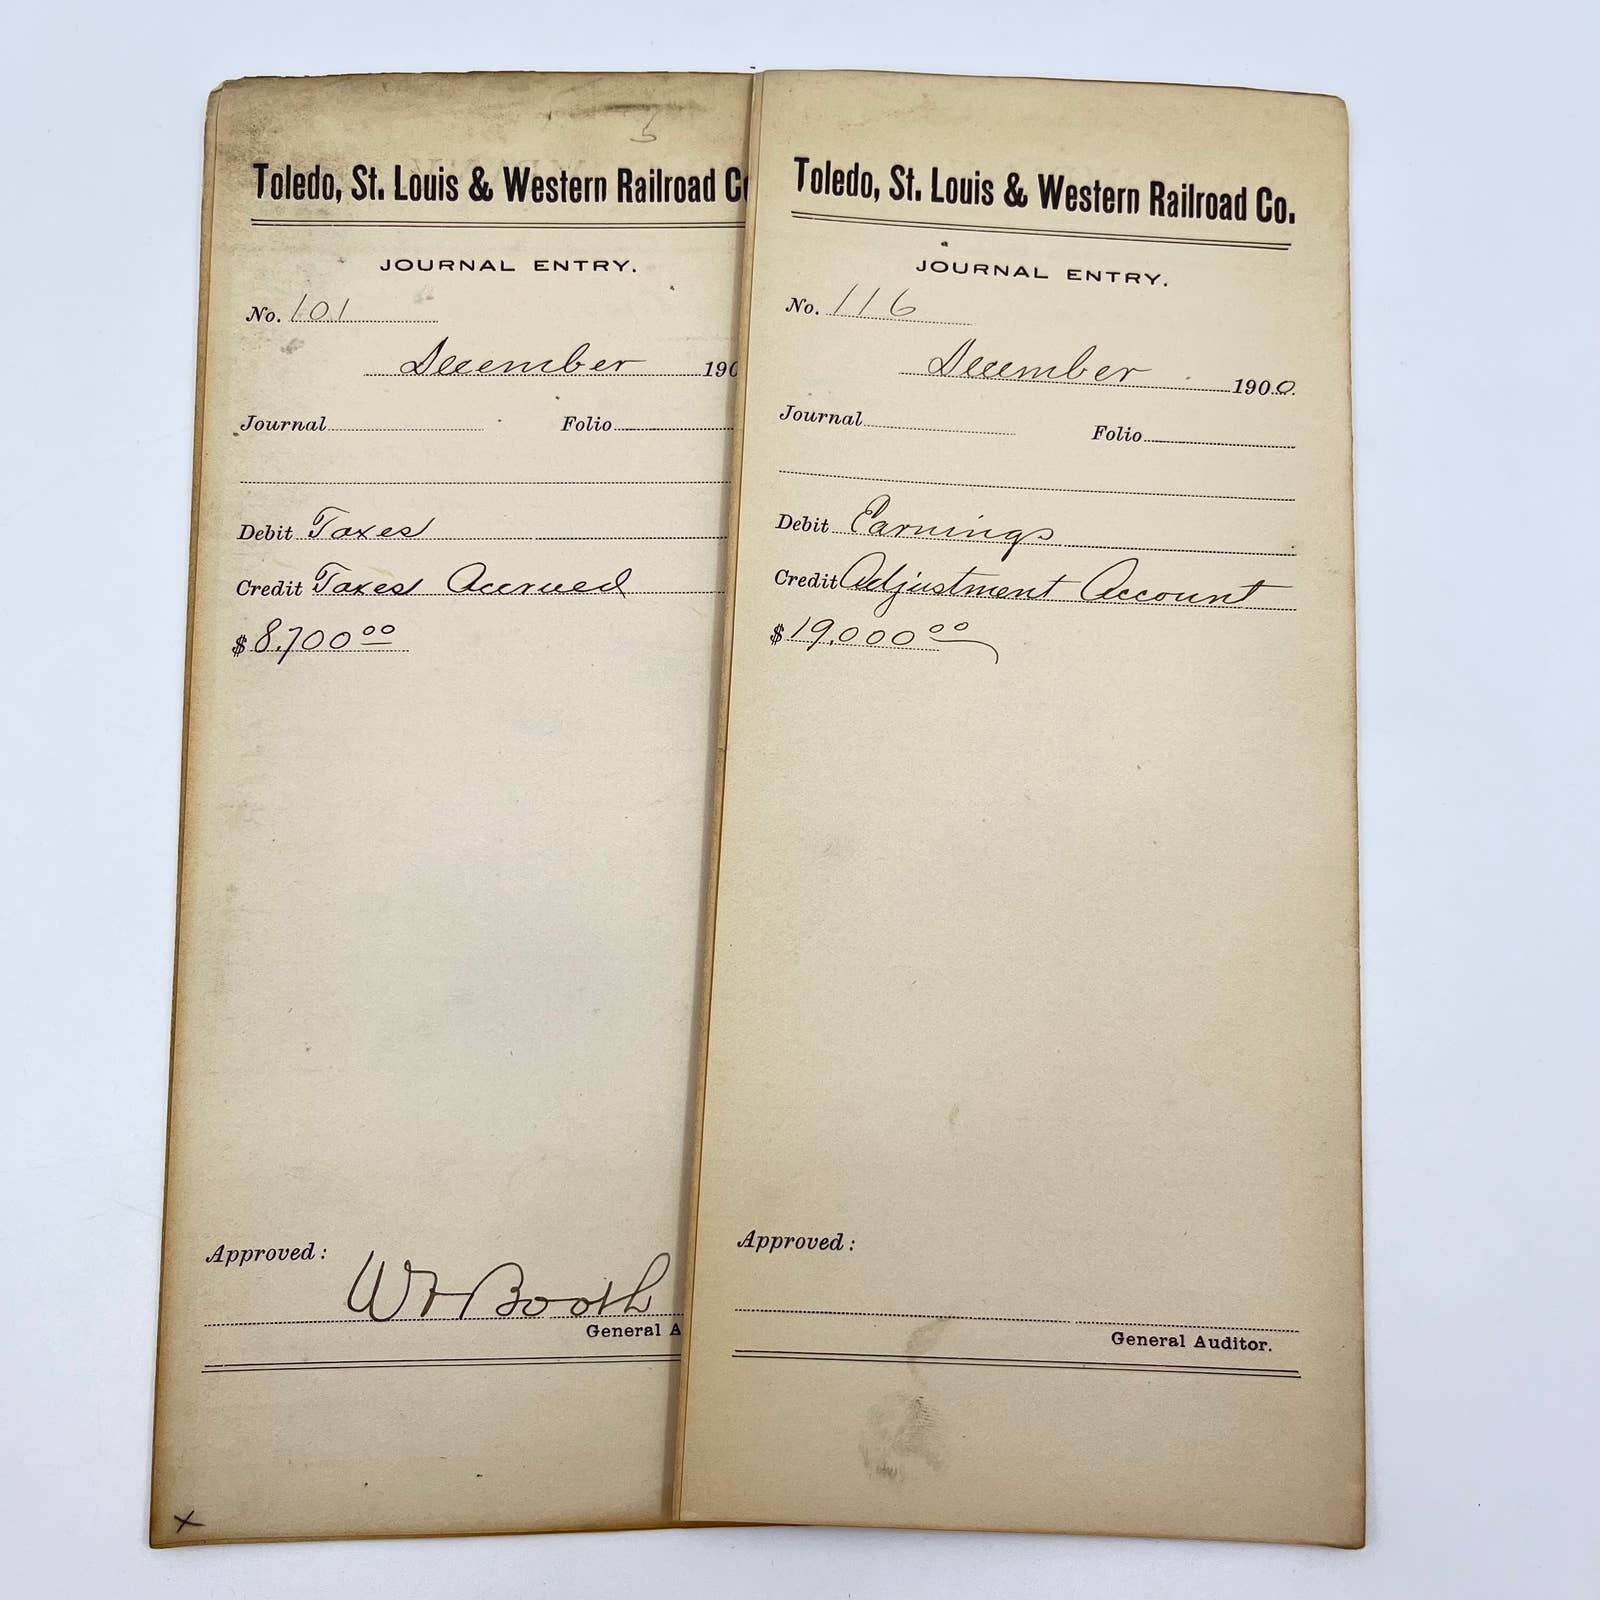 5
Toledo, St. Louis & Western Railroad Co
JOURNAL ENTRY.
No. 101
December 190
Journal Folio
Debit Taxes
Credit Taxes Accrued
$ 8,700 00
Approved:
Booth
General A
x
Toledo, St. Louis & Western Railroad Co.
JOURNAL ENTRY.
No. 116
December 1900.
Journal Folio
Debit Earnings
Credit Adjustment Account
$ 19,000 00
Approved:
General Auditor.